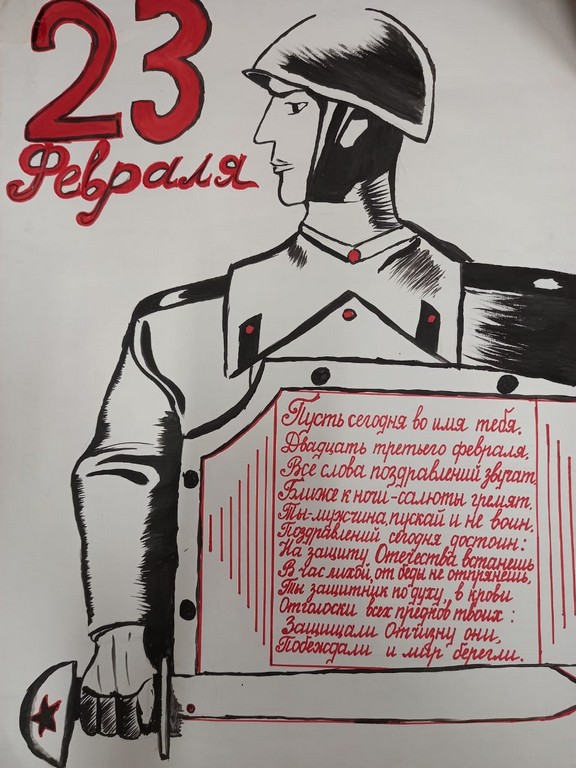 23
Февраля
Пусть сегодня во имя тебя,
Двадцать третьего февраля,
Все слова поздравлений звучат,
Ближе к ночи-салюты гремят.
Ты-мужчина, пускай и не воин.
Поздравлений сегодня достоин:
На защиту Отечества встанешь
В час лихой, от беды не отпрянешь.
Ты защитник по духу, в крови
Отголоски всех предков твоих:
Защищали Отчизну они,
Побеждали и мир берегли.